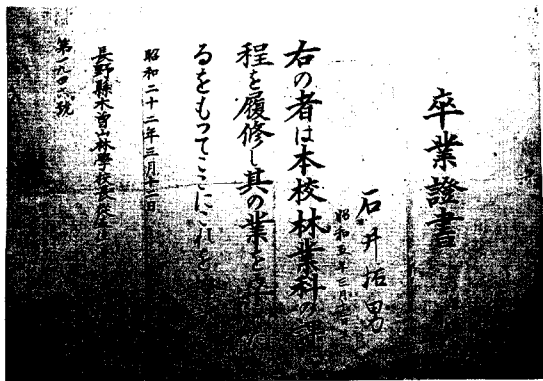 卒業證書
石井拓男
昭和五年三月
右の者は本校林業科の課
程を履修し其の業を
るをもってここにこれを
昭和二十二年三月十二日
長野縣木曽山林學校長
第一九四六號